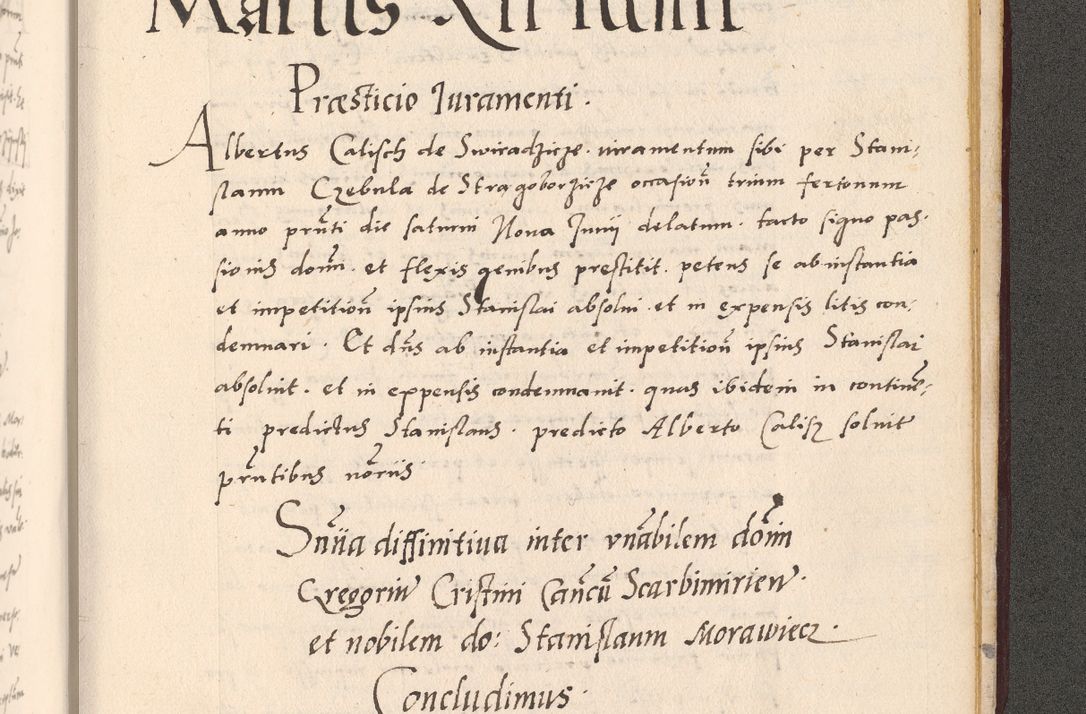 Martis XII Iunii
Præsticio Iuramenti ·
Albertus Calisch de Swiradzicze · iuramentum sibi per Stani-
slaum Czebula de Stragoborzicze occasioñ trium fertonum
anno prñti die saturni Nona Junii delatum · tacto signo pas-
sionis domĩ · et flexis genibus prestitit · petens se ab instantia
et impetitioñ ipsius Stanislai absolui · et in expensis litis con-
demnari · Et dñs ab instantia et impetitioñ ipsius Stanislai
absoluit · et in expensis condemnauit · quas ibidem in contine̅-
ti predictus Stanislaus · predicto Alberto Calisz soluit
prñtibus noriis
Snīia diffinitiua inter vnãbilem domĩn
Gregoriũ Cristini Cañcũ Scarbimirieñ ·
et nobilem do: Stanislaum Morawiecz ·
Concludimus ·